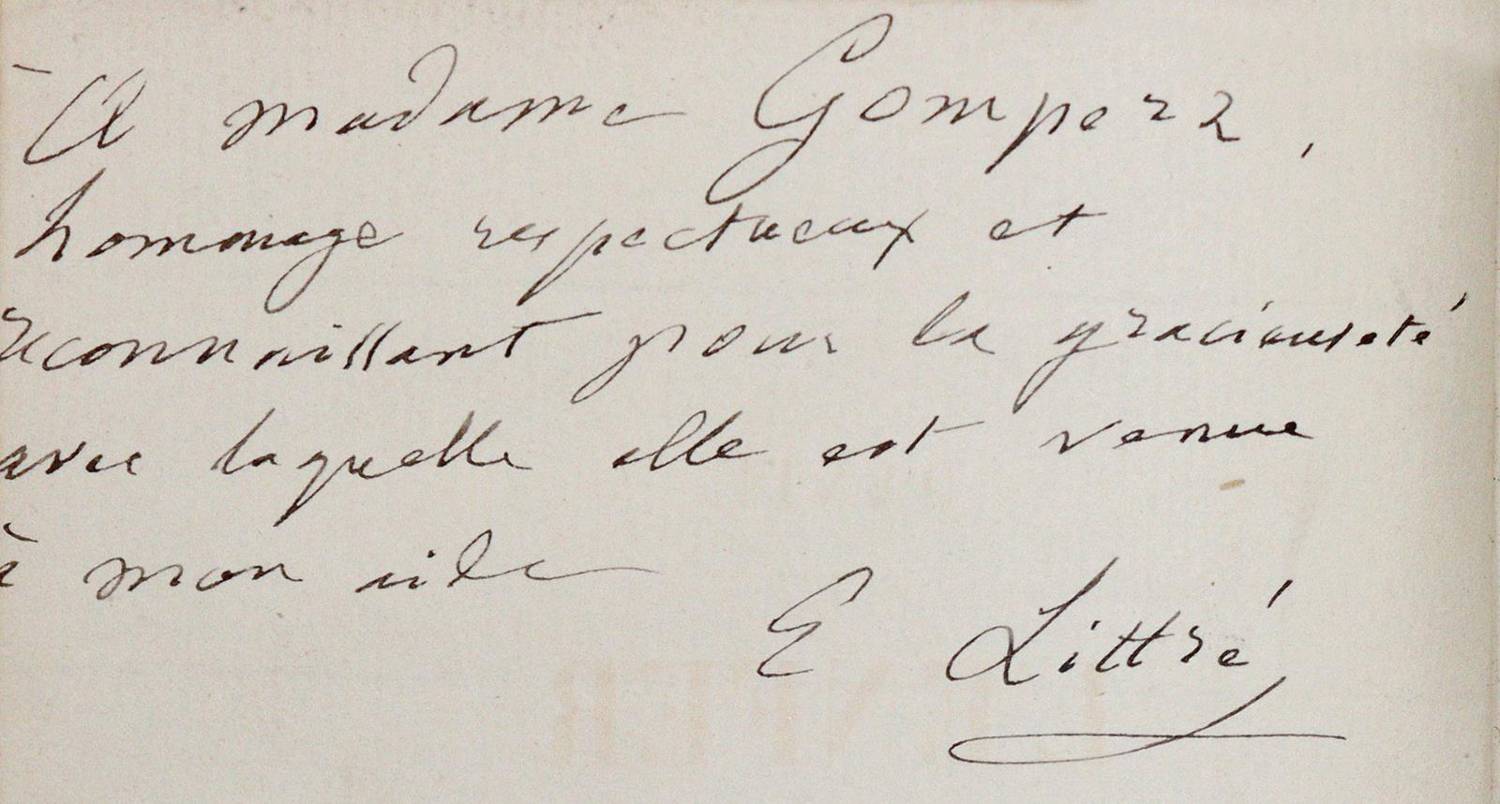 À madame Gomperz,
hommage respectueux et
reconnaissant pour la gracieuseté
avec laquelle elle est venue
à mon aide
E Littré